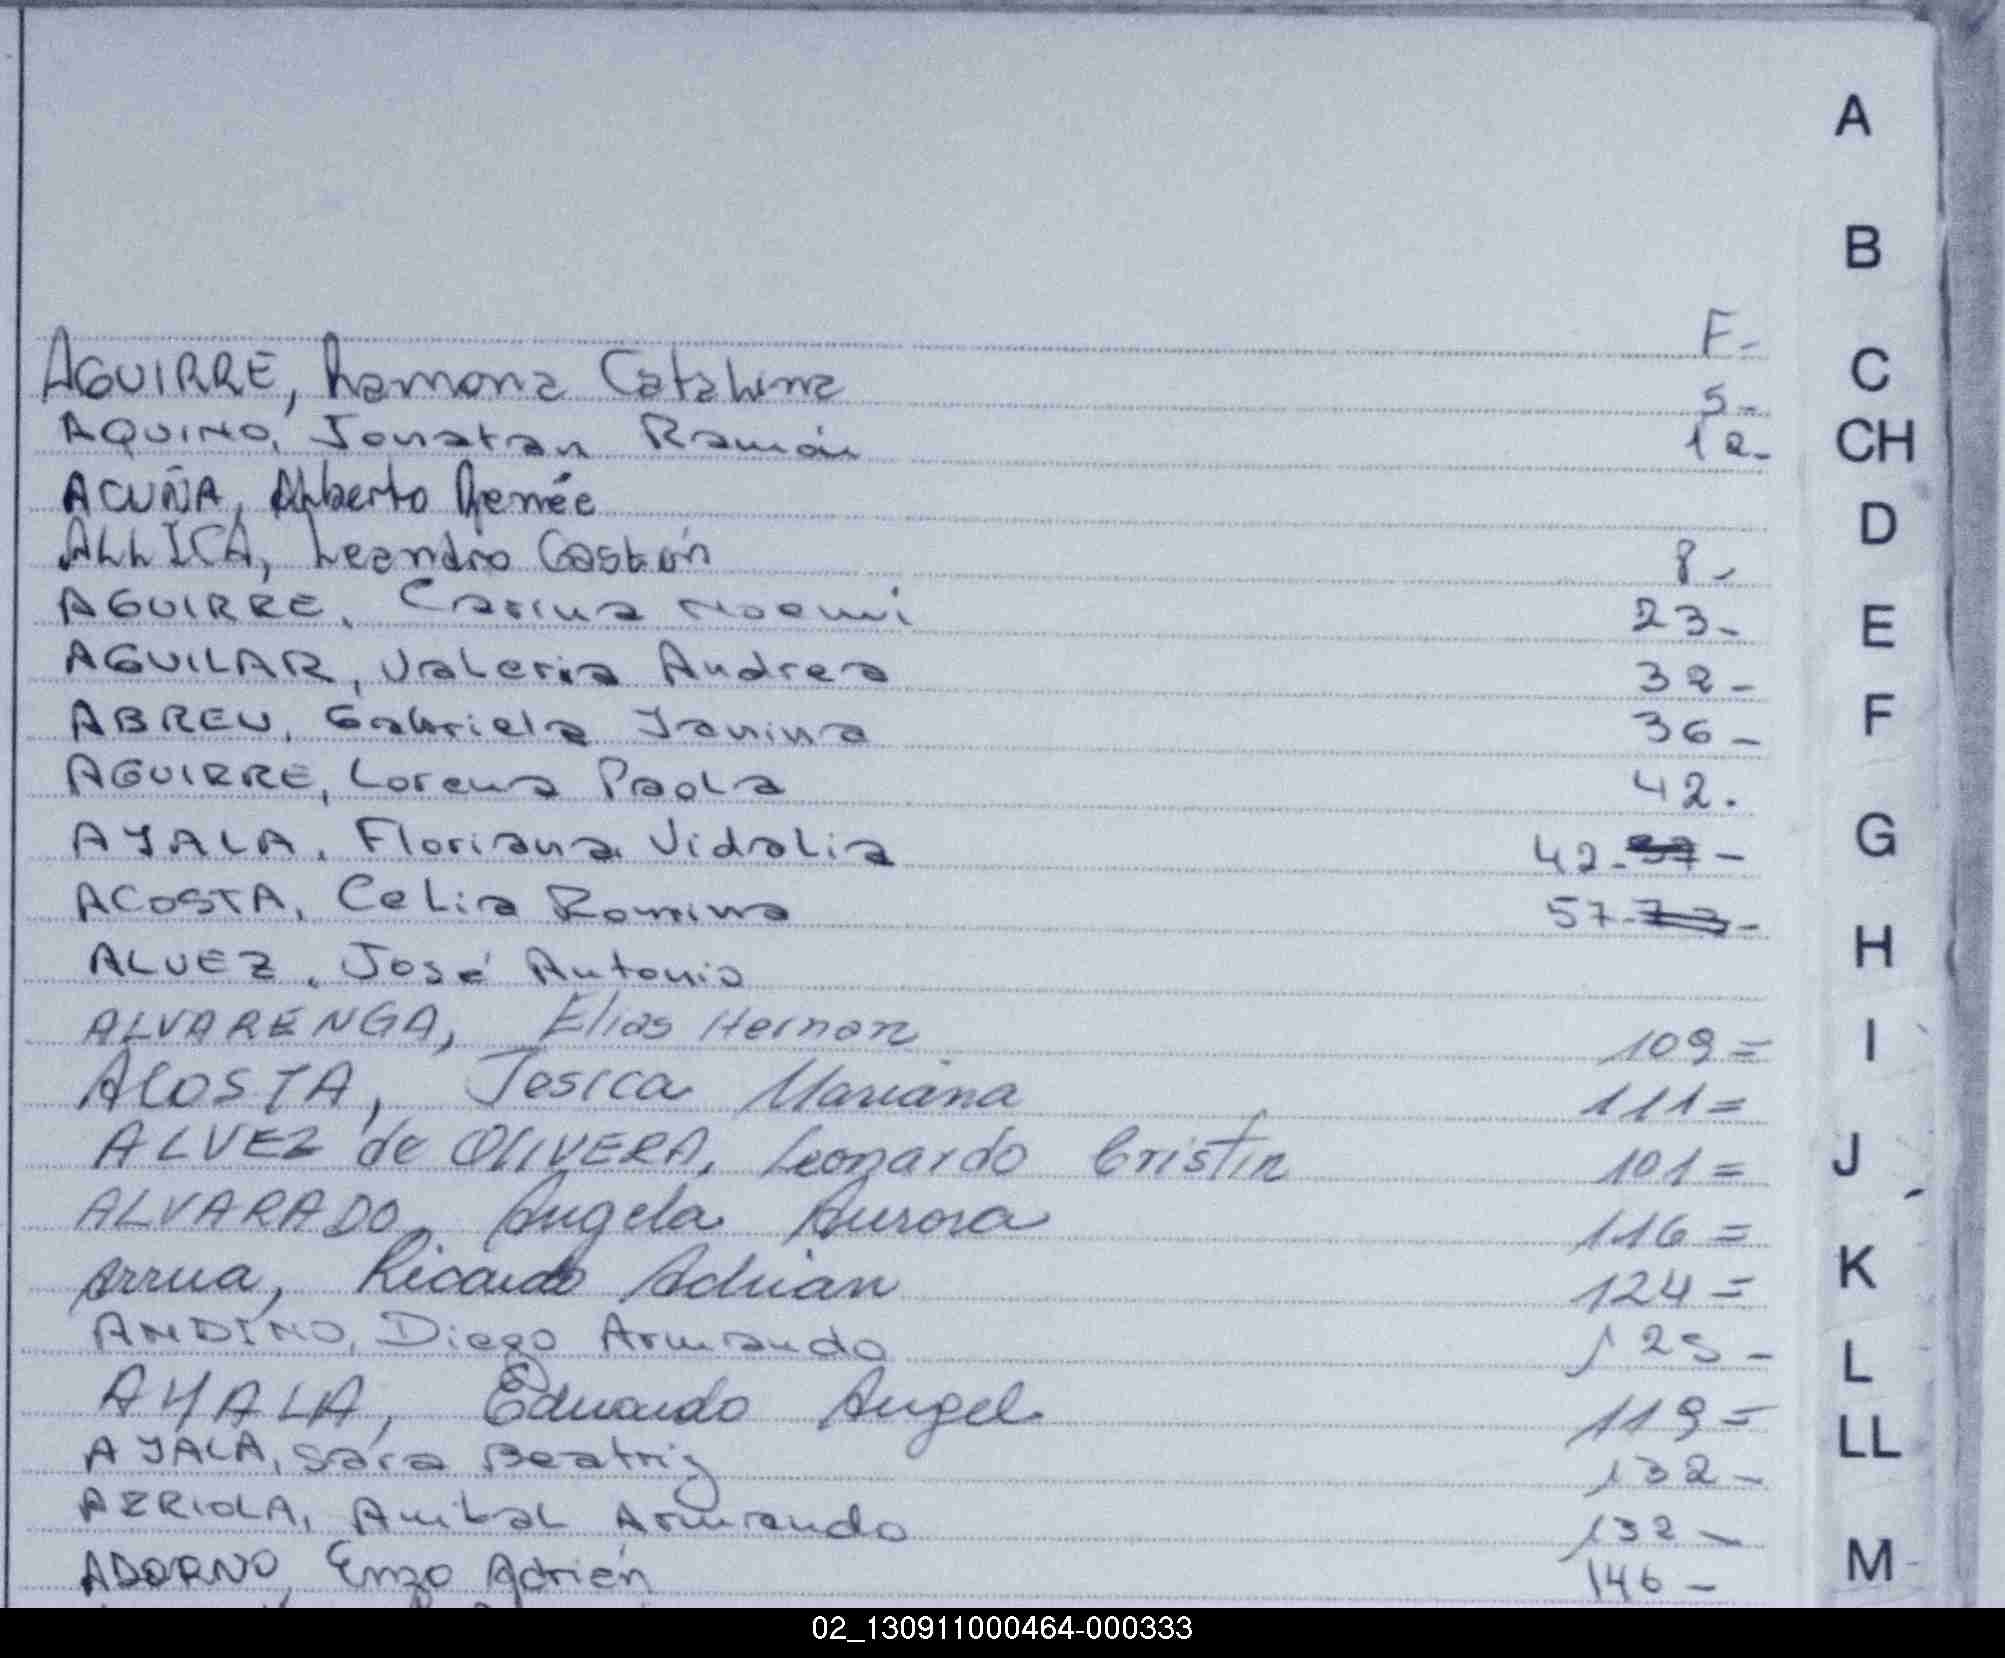 A
B
F-
AGUIRRE, Ramona Catalina 5-
C
AQUINO, Jonatan Ramón 12-
CH
ACUÑA, Alberto Renée
D
ALLICA, Leandro Gastón 8-
AGUIRRE, Carina Noemi 23-
E
AGUILAR, Valeria Andrea 32-
ABREU, Gabriela Janina 36-
F
AGUIRRE, Lorena Paola 42.
AYALA, Floriana Vidalia 42-37-
G
ACOSTA, Celia Romina 57-73-
H
ALVEZ, José Antonio
ALVARENGA, Elias Hernan 109=
I
ACOSTA, Jesica Mariana 111=
ALVEZ de OLIVERA, Leonardo Cristin 101=
J
ALVARADO, Angela Aurora 116=
Arrua, Ricardo Adrian 124=
K
ANDINO, Diego Armando 125-
L
AYALA, Eduardo Angel 119=
LL
AYALA, Sara Beatriz 132-
Anibal Armando 132-
ADORNO, Enzo Adrién 146-
M
02_130911000464-000333